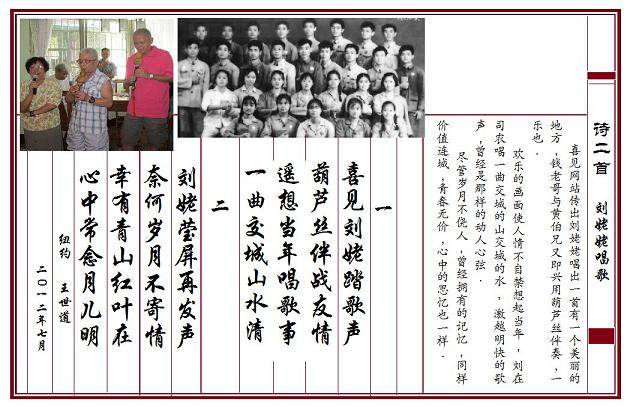 诗二首 刘姥姥唱歌
喜见网站传出刘姥姥唱出一首有一个美丽的
地方,钱老哥与黄伯兄又即兴用葫芦丝伴奏,一
乐也.
欢乐的画面使人情不自禁想起当年,刘在
司农唱一曲交城的山交城的水,激越明快的歌
声,曾经是那样的动人心弦.
尽管岁月不侥人,曾经拥有的记忆,同样
价值连城,青春无价,心中的思忆也一样.
一
喜见刘姥踏歌声
葫芦丝伴战友情
遥想当年唱歌事
一曲交城山水清
二
刘姥莹屏再发声
奈何岁月不寄情
幸有青山红叶在
心中常念月儿明
纽约 王世道
二〇一二年七月